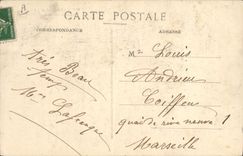 CARTE POSTALE
CORRESPONDANCE
ADRESSE
très Beau
temps
Mr Louis
Andrieu
Coiffeur
quai de rive neuve 1
Marseille